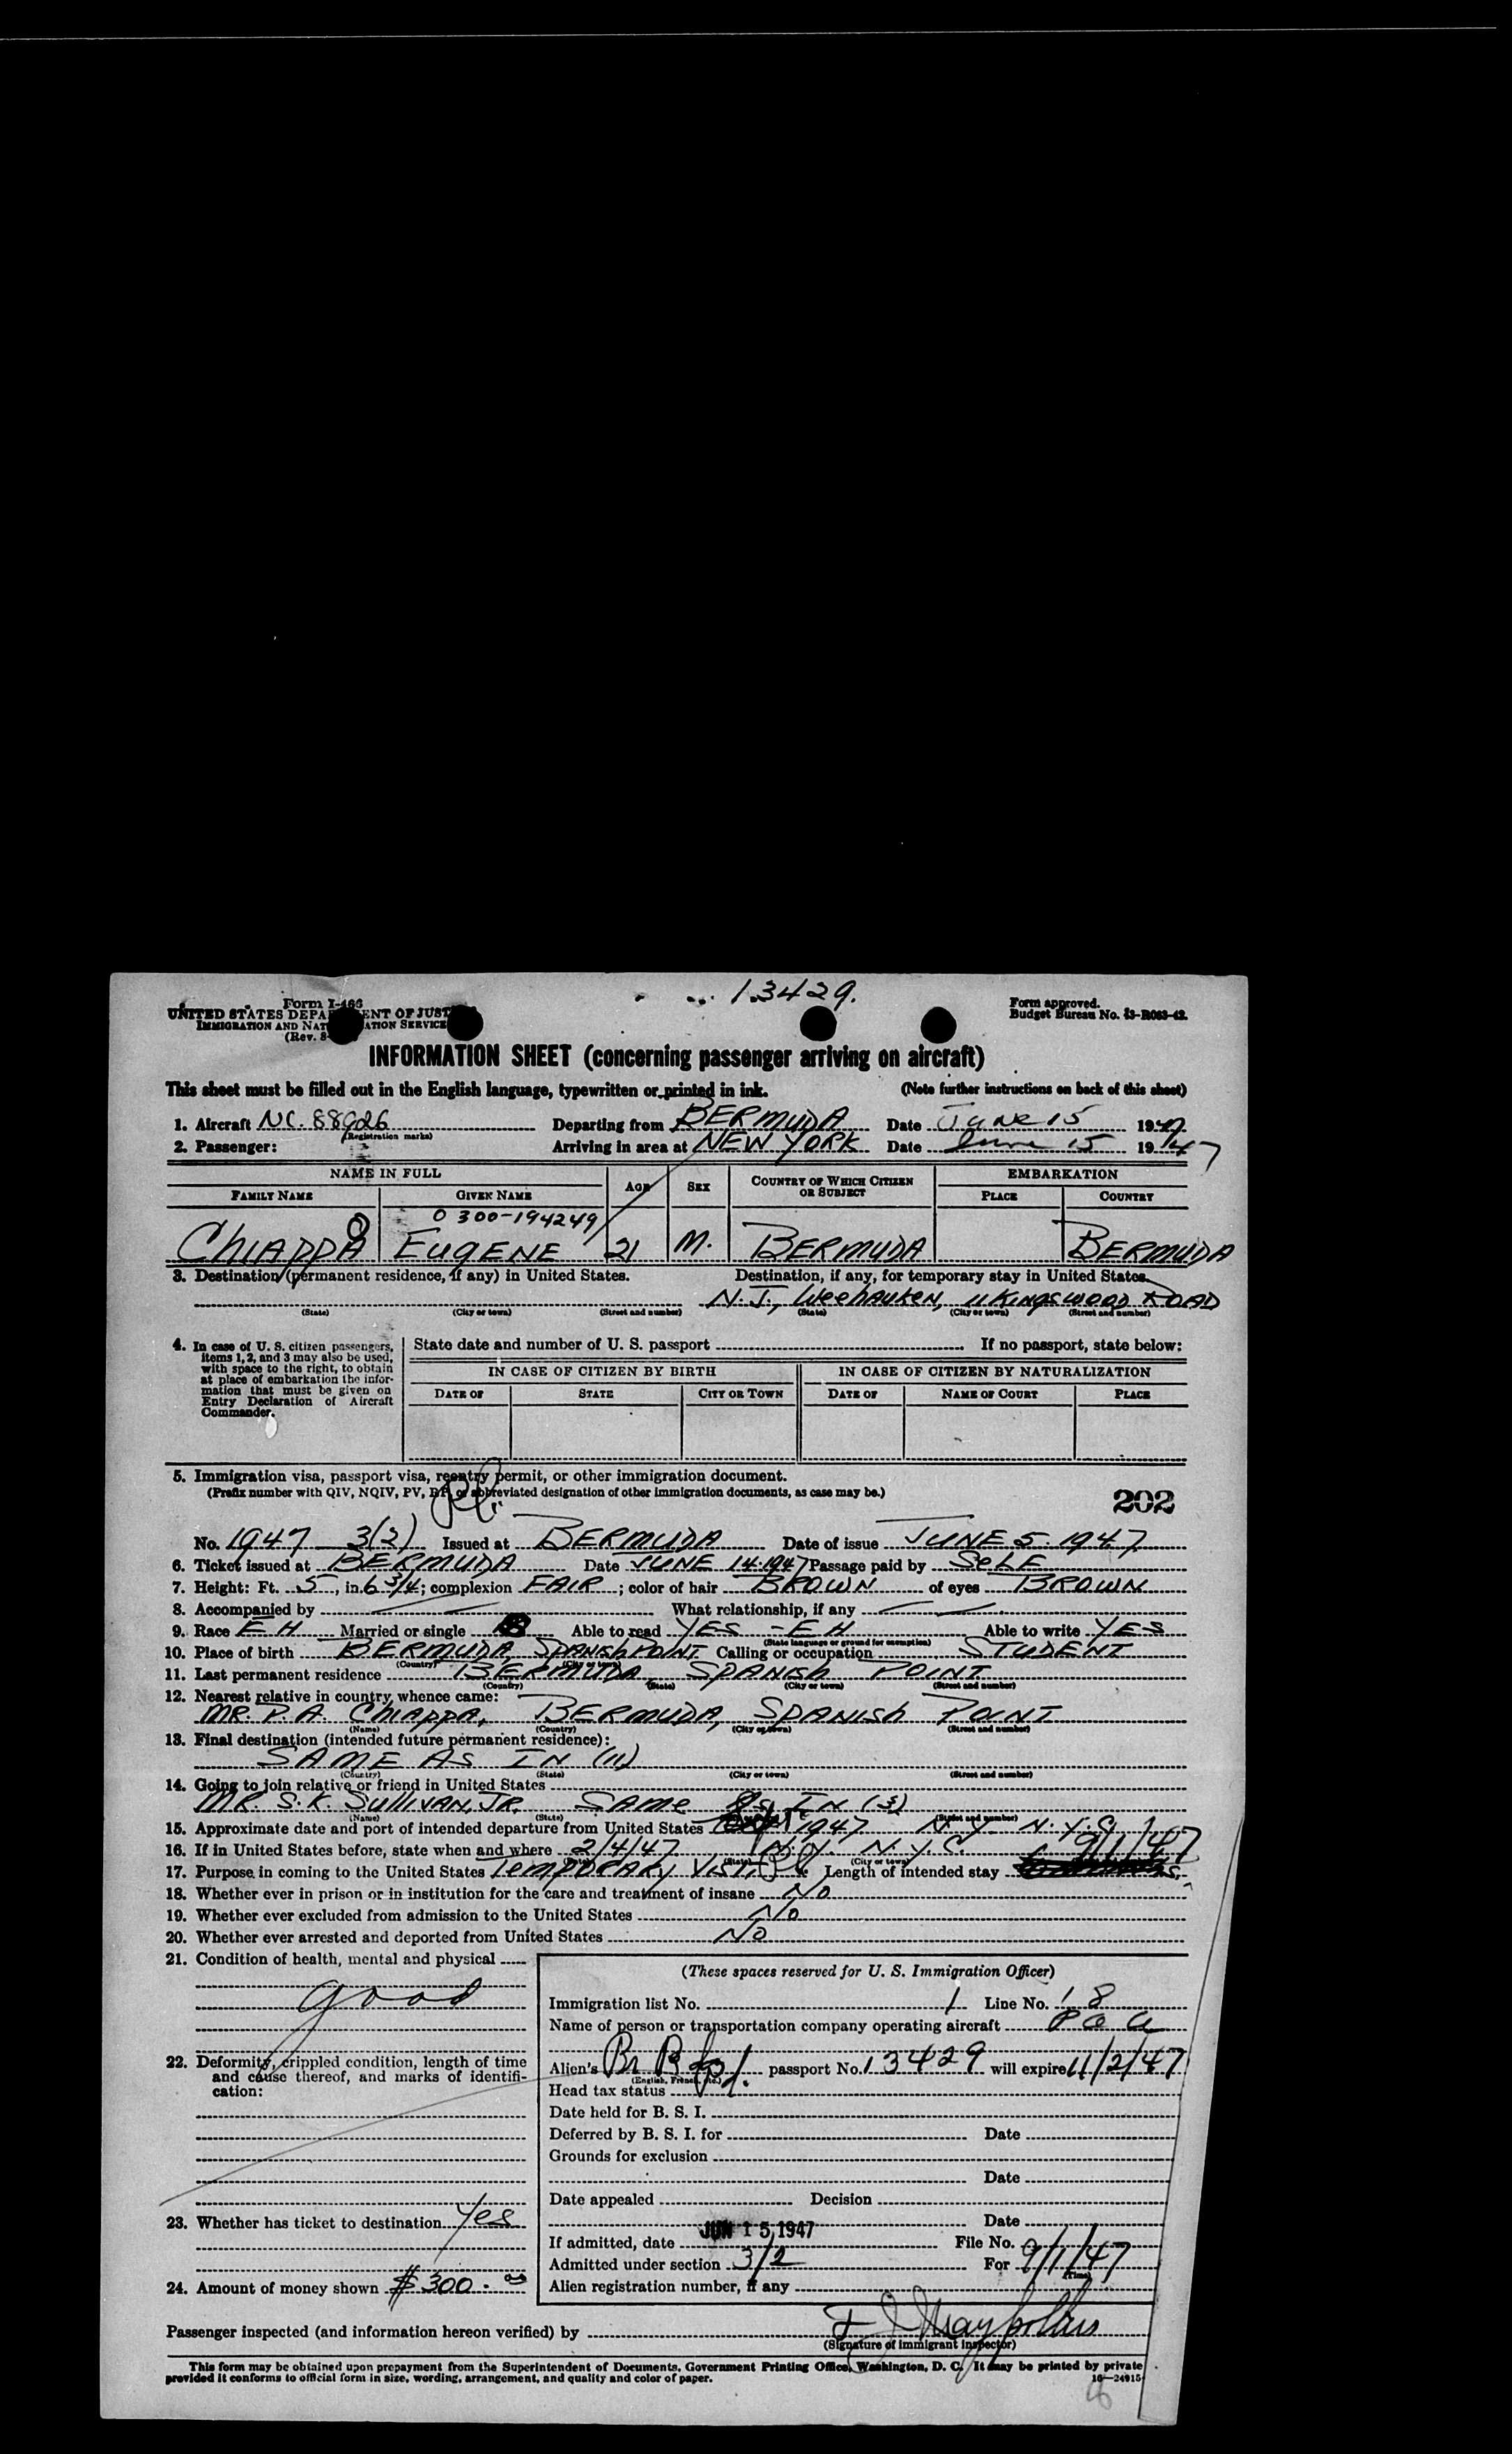 13429.
Form I-466
UNITED STATES DEPA ENT OF JUST
IMMIGRATION AND NAT ATION SERVICE
(Rev. 8-
Form approved.
Budget Bureau No. 43-R063-42.
INFORMATION SHEET (concerning passenger arriving on aircraft)
This sheet must be filled out in the English language, typewritten or printed in ink. (Note further instructions on back of this sheet)
1. Aircraft NC. 88926 Departing from BERMUDA Date June 15 1947
(Registration marks)
2. Passenger: Arriving in area at NEW YORK Date June 15 1947
NAME IN FULL AGE SEX COUNTRY OF WHICH CITIZEN OR SUBJECT EMBARKATION
FAMILY NAME GIVEN NAME PLACE COUNTRY
0 300-194249
CHIAPPA EUGENE 21 M. BERMUDA BERMUDA
3. Destination (permanent residence, if any) in United States. Destination, if any, for temporary stay in United States.
N.J., Weehauken, 11 Kingswood ROAD
(State) (City or town) (Street and number) (State) (City or town) (Street and number)
4. In case of U. S. citizen passengers, items 1, 2, and 3 may also be used, with space to the right, to obtain at place of embarkation the information that must be given on Entry Declaration of Aircraft Commander.
State date and number of U. S. passport If no passport, state below:
IN CASE OF CITIZEN BY BIRTH IN CASE OF CITIZEN BY NATURALIZATION
DATE OF STATE CITY OR TOWN DATE OF NAME OF COURT PLACE
5. Immigration visa, passport visa, reentry permit, or other immigration document.
(Prefix number with QIV, NQIV, PV, RP, or abbreviated designation of other immigration documents, as case may be.)
202
No. 1947 3(2) Issued at BERMUDA Date of issue JUNE 5. 1947
6. Ticket issued at BERMUDA Date JUNE 14.1947 Passage paid by SELF
7. Height: Ft. 5, in. 6 3/4; complexion FAIR; color of hair BROWN of eyes BROWN
8. Accompanied by What relationship, if any
9. Race EH Married or single Able to read YES - EH Able to write YES
(State language or ground for exemption)
10. Place of birth BERMUDA, SPANISH POINT Calling or occupation STUDENT
(Country) (City or town)
11. Last permanent residence BERMUDA, SPANISH POINT
(Country) (State) (City or town) (Street and number)
12. Nearest relative in country whence came:
MR. P.A. CHIAPPA, BERMUDA, SPANISH POINT
(Name) (Country) (City or town) (Street and number)
13. Final destination (intended future permanent residence):
SAME AS IN (11)
(Country) (State) (City or town) (Street and number)
14. Going to join relative or friend in United States
MR. S.K. SULLIVAN, JR, SAME AS IN (3)
(Name) (State) (Street and number)
15. Approximate date and port of intended departure from United States 1947 N.Y. N.Y.C.
16. If in United States before, state when and where 2/4/47. N.Y. N.Y.C. 9/1/47
(Date) (State) (City or town)
17. Purpose in coming to the United States TEMPORARY VISIT Length of intended stay
18. Whether ever in prison or in institution for the care and treatment of insane No
19. Whether ever excluded from admission to the United States No
20. Whether ever arrested and deported from United States No
21. Condition of health, mental and physical
good
22. Deformity, crippled condition, length of time and cause thereof, and marks of identification:
23. Whether has ticket to destination Yes
24. Amount of money shown $300.00
(These spaces reserved for U. S. Immigration Officer)
Immigration list No. 1 Line No. 18
Name of person or transportation company operating aircraft P a a
Alien's Br passport No. 13429 will expire 11/2/47
(English, French, etc.)
Head tax status
Date held for B. S. I.
Deferred by B. S. I. for Date
Grounds for exclusion
Date
Date appealed Decision
Date
If admitted, date JUN 15 1947 File No.
Admitted under section 3/2 For 9/1/47
(Time)
Alien registration number, if any
Passenger inspected (and information hereon verified) by
(Signature of immigrant inspector)
This form may be obtained upon prepayment from the Superintendent of Documents, Government Printing Office, Washington, D. C. It may be printed by private
provided it conforms to official form in size, wording, arrangement, and quality and color of paper. 16—24915